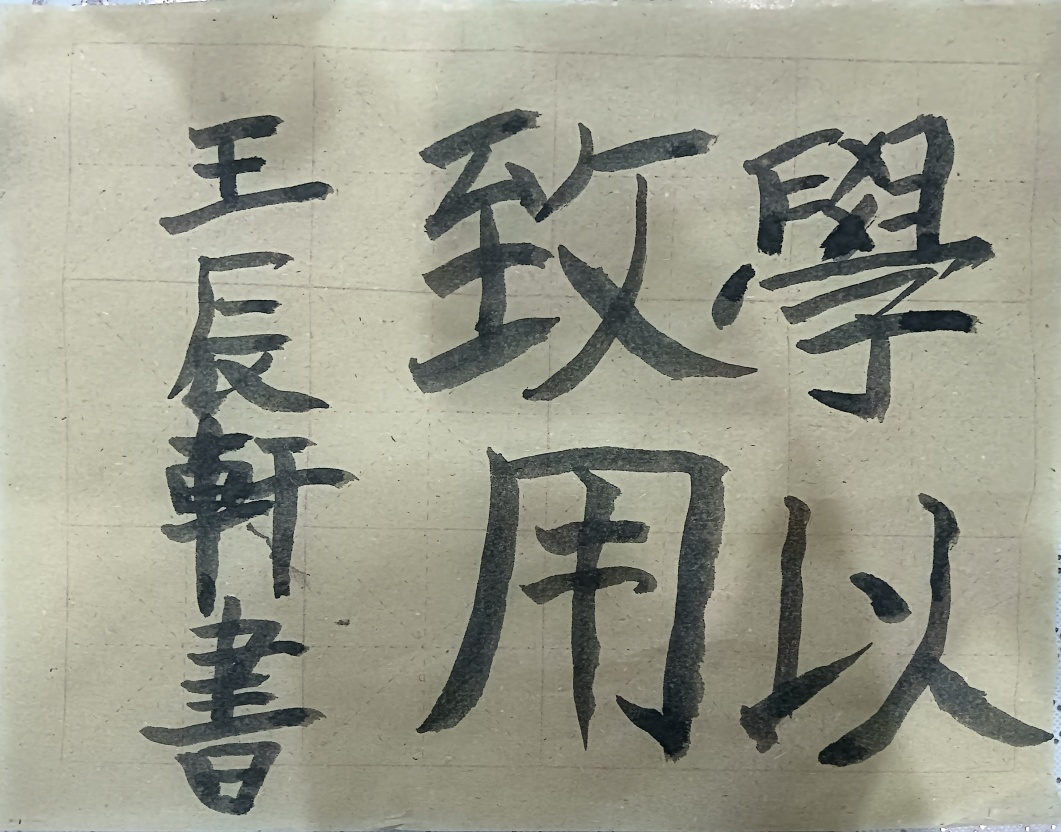 學以
致用
王辰軒書